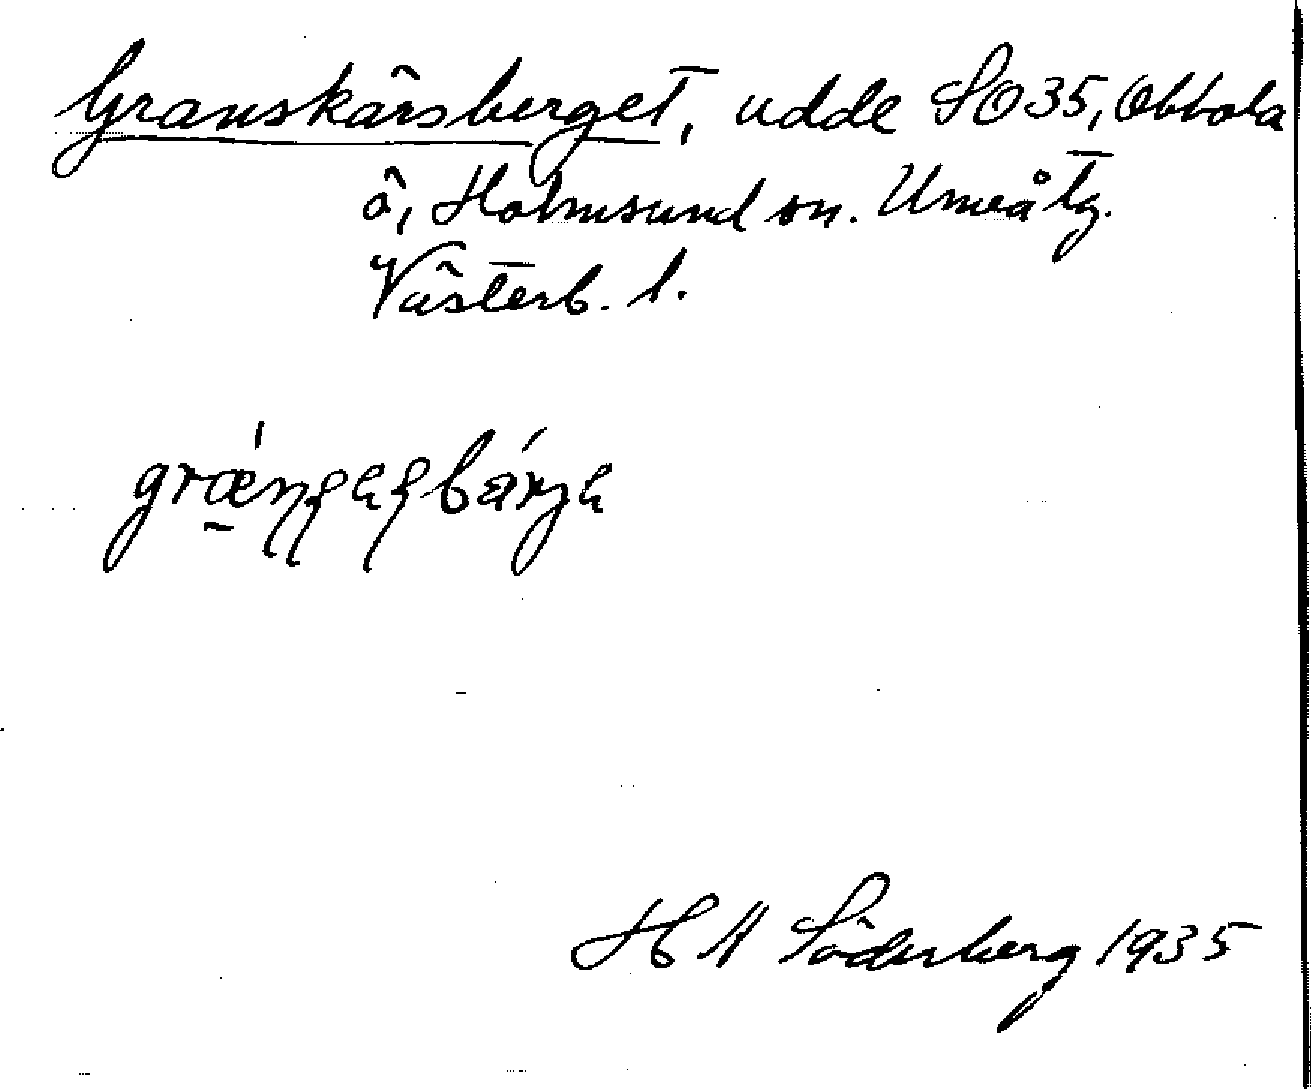 Granskärsberget, udde SO35, Obbola
ö, Holmsund sn. Umeå tg.
Västerb. l.
H A Söderberg 1935